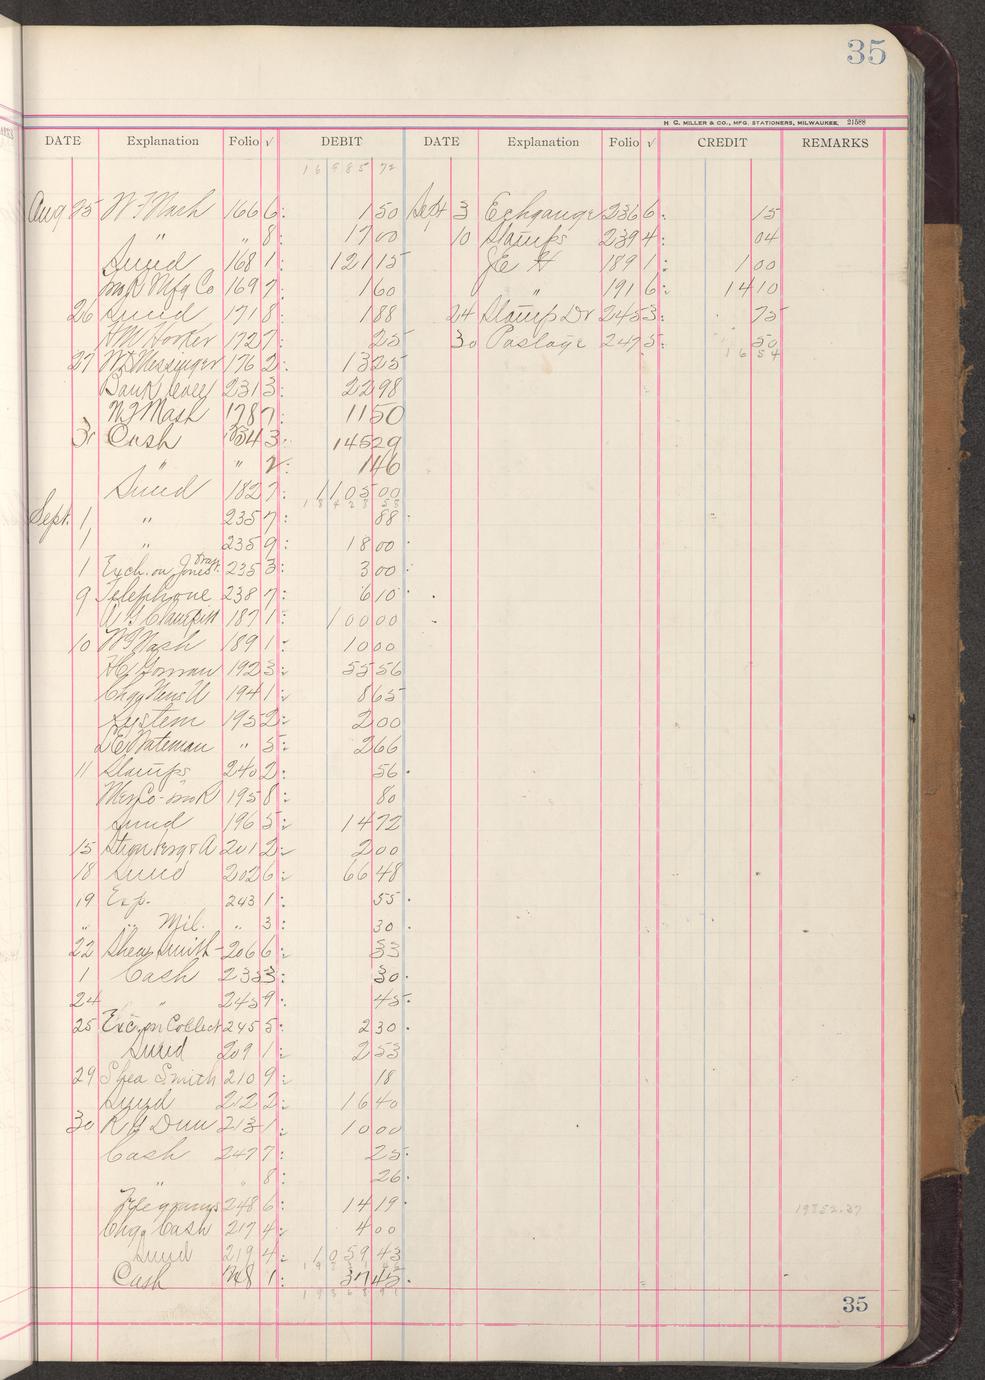 35
H. C. MILLER & CO., MFG. STATIONERS, MILWAUKEE. 21588
DATE Explanation Folio √ DEBIT DATE Explanation Folio √ CREDIT REMARKS
16985 72
Aug 25 W F Nash 166 6 1 50 Sept 3 Exchange 236 6 15
" " 8 17 00 10 Stamps 239 4 04
Sund 168 1 121 15 J E H 189 1 1 00
Mfg Co 169 7 1 60 " 191 6 14 10
26 Sund 171 8 1 88 24 Stamp Dr 245 3 75
H M Hooker 172 7 25 30 Postage 247 5 50
16 54
27 W D Messinger 176 2 13 25
Bank 231 3 22 98
W F Nash 178 7 11 50
31 Cash 3 145 29
" " 2 1 46
Sund 182 7 1105 00
18428 58
Sept. 1 " 235 7 88
1 " 235 9 18 00
1 Exch. on Jones Draft 235 3 3 00
9 Telephone 238 7 6 10
187 1 100 00
10 W F Nash 189 1 10 00
H E Gorman 192 3 55 56
194 1 8 65
System 195 2 2 00
L E Bateman " 5 2 66
11 Stamps 240 2 56
195 8 80
Sund 196 5 14 72
15 201 2 2 00
18 Sund 202 6 66 48
19 Exp. 243 1 55
" " Mil. " 3 30
22 Shea Smith 206 6 53
1 Cash 233 3 30
24 " 245 9 45
25 Exc. on Collect 245 5 2 30
Sund 209 1 2 53
29 Shea Smith 210 9 18
Sund 212 2 16 40
30 R G Dun 213 1 10 00
Cash 247 7 25
" " 8 26
Telegrams 248 6 14 19
Chgo Cash 217 4 4 00
19852.37
Sund 219 4 1059 43
Cash 248 1 37 45
35